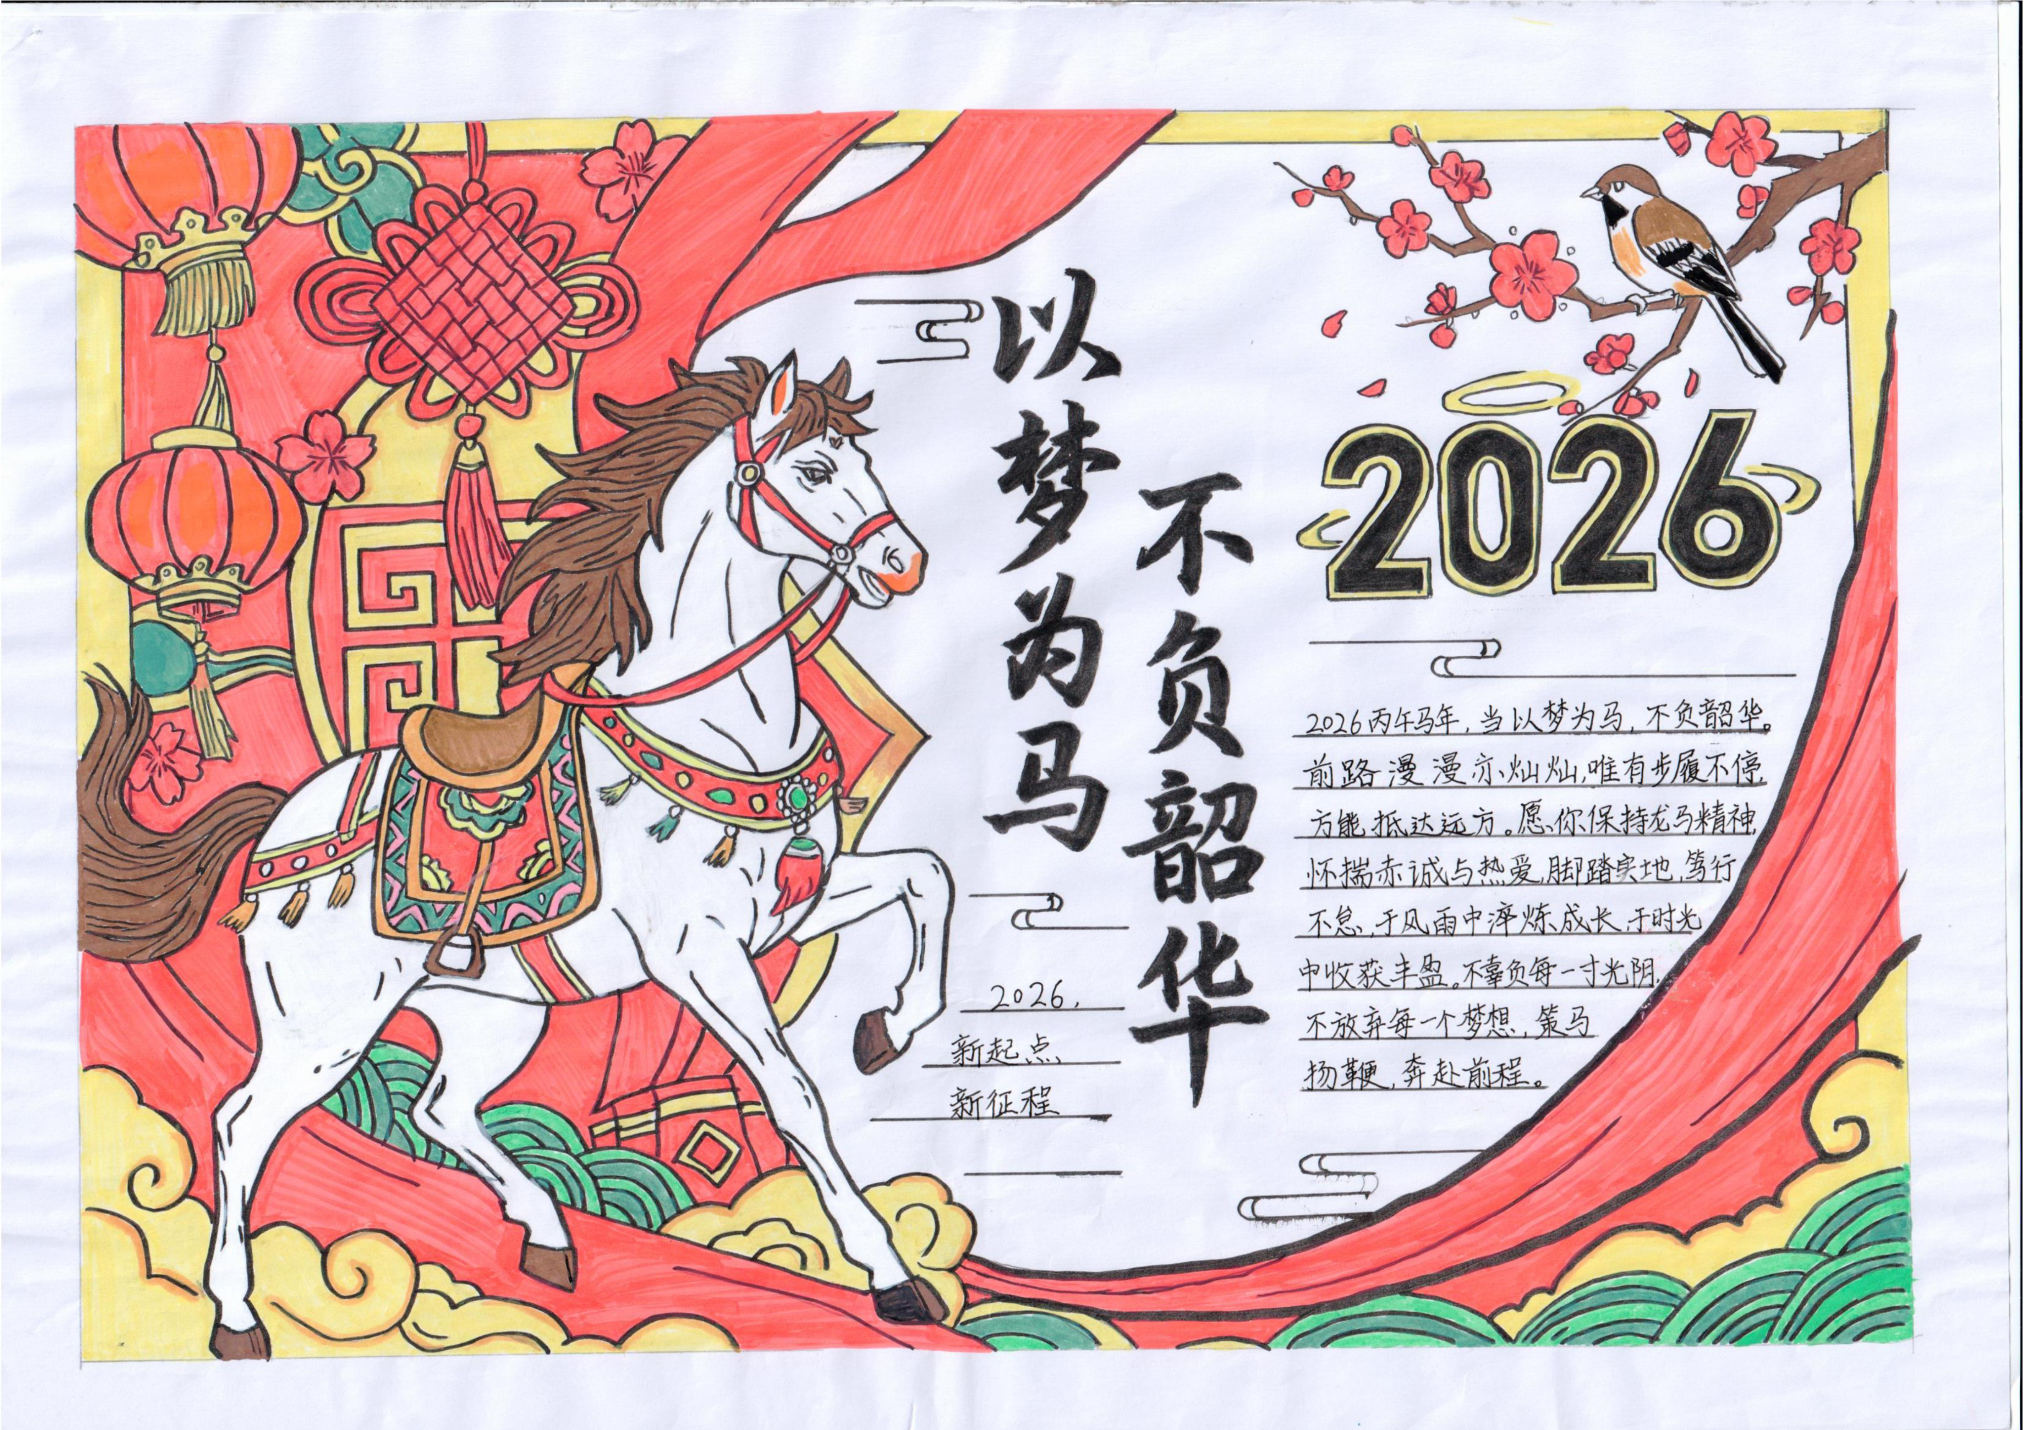 以梦为马
不负韶华
2026
2026丙午马年，当以梦为马，不负韶华。
前路漫漫亦灿灿，唯有步履不停，
方能抵达远方。愿你保持龙马精神，
怀揣赤诚与热爱，脚踏实地，笃行
不怠，于风雨中淬炼成长，于时光
中收获丰盈。不辜负每一寸光阴，
不放弃每一个梦想，策马
扬鞭，奔赴前程。
2026，
新起点
新征程